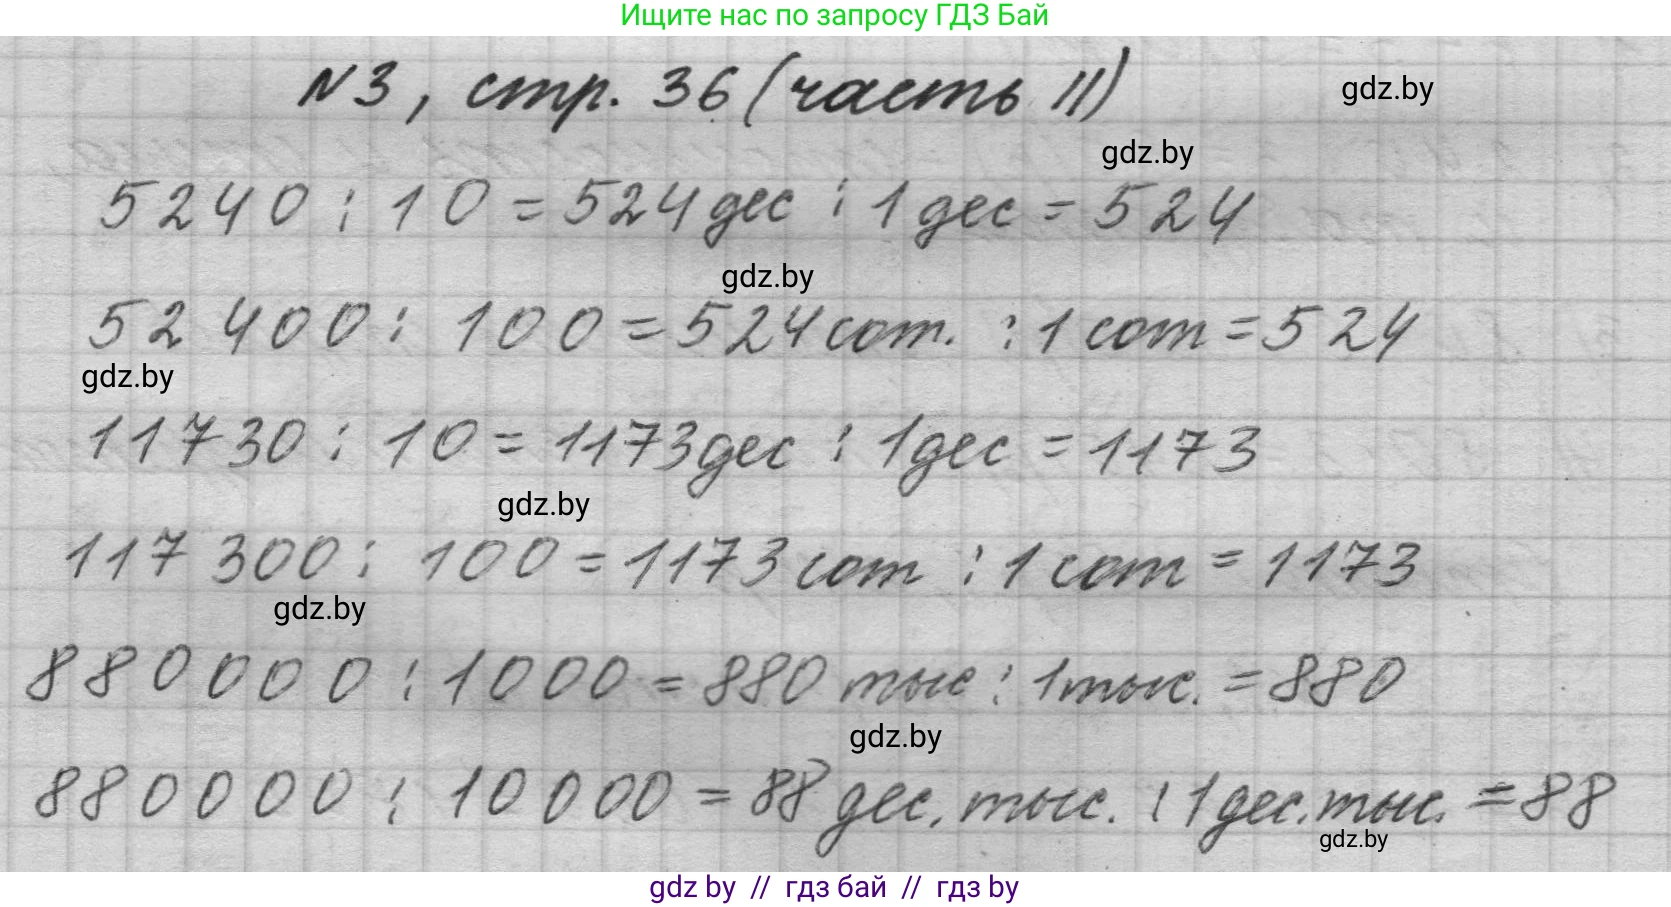 Ищите нас по запросу ГДЗ Бай
N3, стр. 36 (часть II)
gdz.by
gdz.by
5240 : 10 = 524 дес : 1 дес = 524
gdz.by
52 400 : 100 = 524 сот. : 1 сот = 524
gdz.by
11730 : 10 = 1173 дес : 1 дес = 1173
gdz.by
117 300 : 100 = 1173 сот : 1 сот = 1173
gdz.by
880000 : 1000 = 880 тыс : 1 тыс. = 880
gdz.by
880000 : 10000 = 88 дес. тыс. : 1 дес. тыс. = 88
gdz.by
gdz by // гдз бай // гдз by